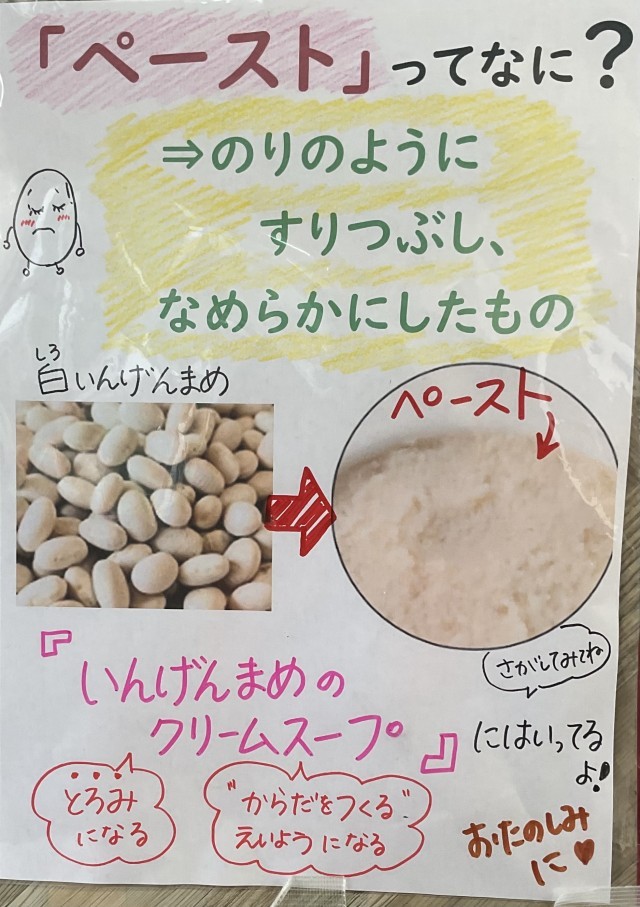 「ペースト」ってなに？
⇒のりのように
すりつぶし、
なめらかにしたもの
しろ
白いんげんまめ
ペースト
さがしてみてね
『いんげんまめの
クリームスープ』
にはいってる
よ!
とろみ
になる
"からだをつくる"
えいようになる
おたのしみ
に♥